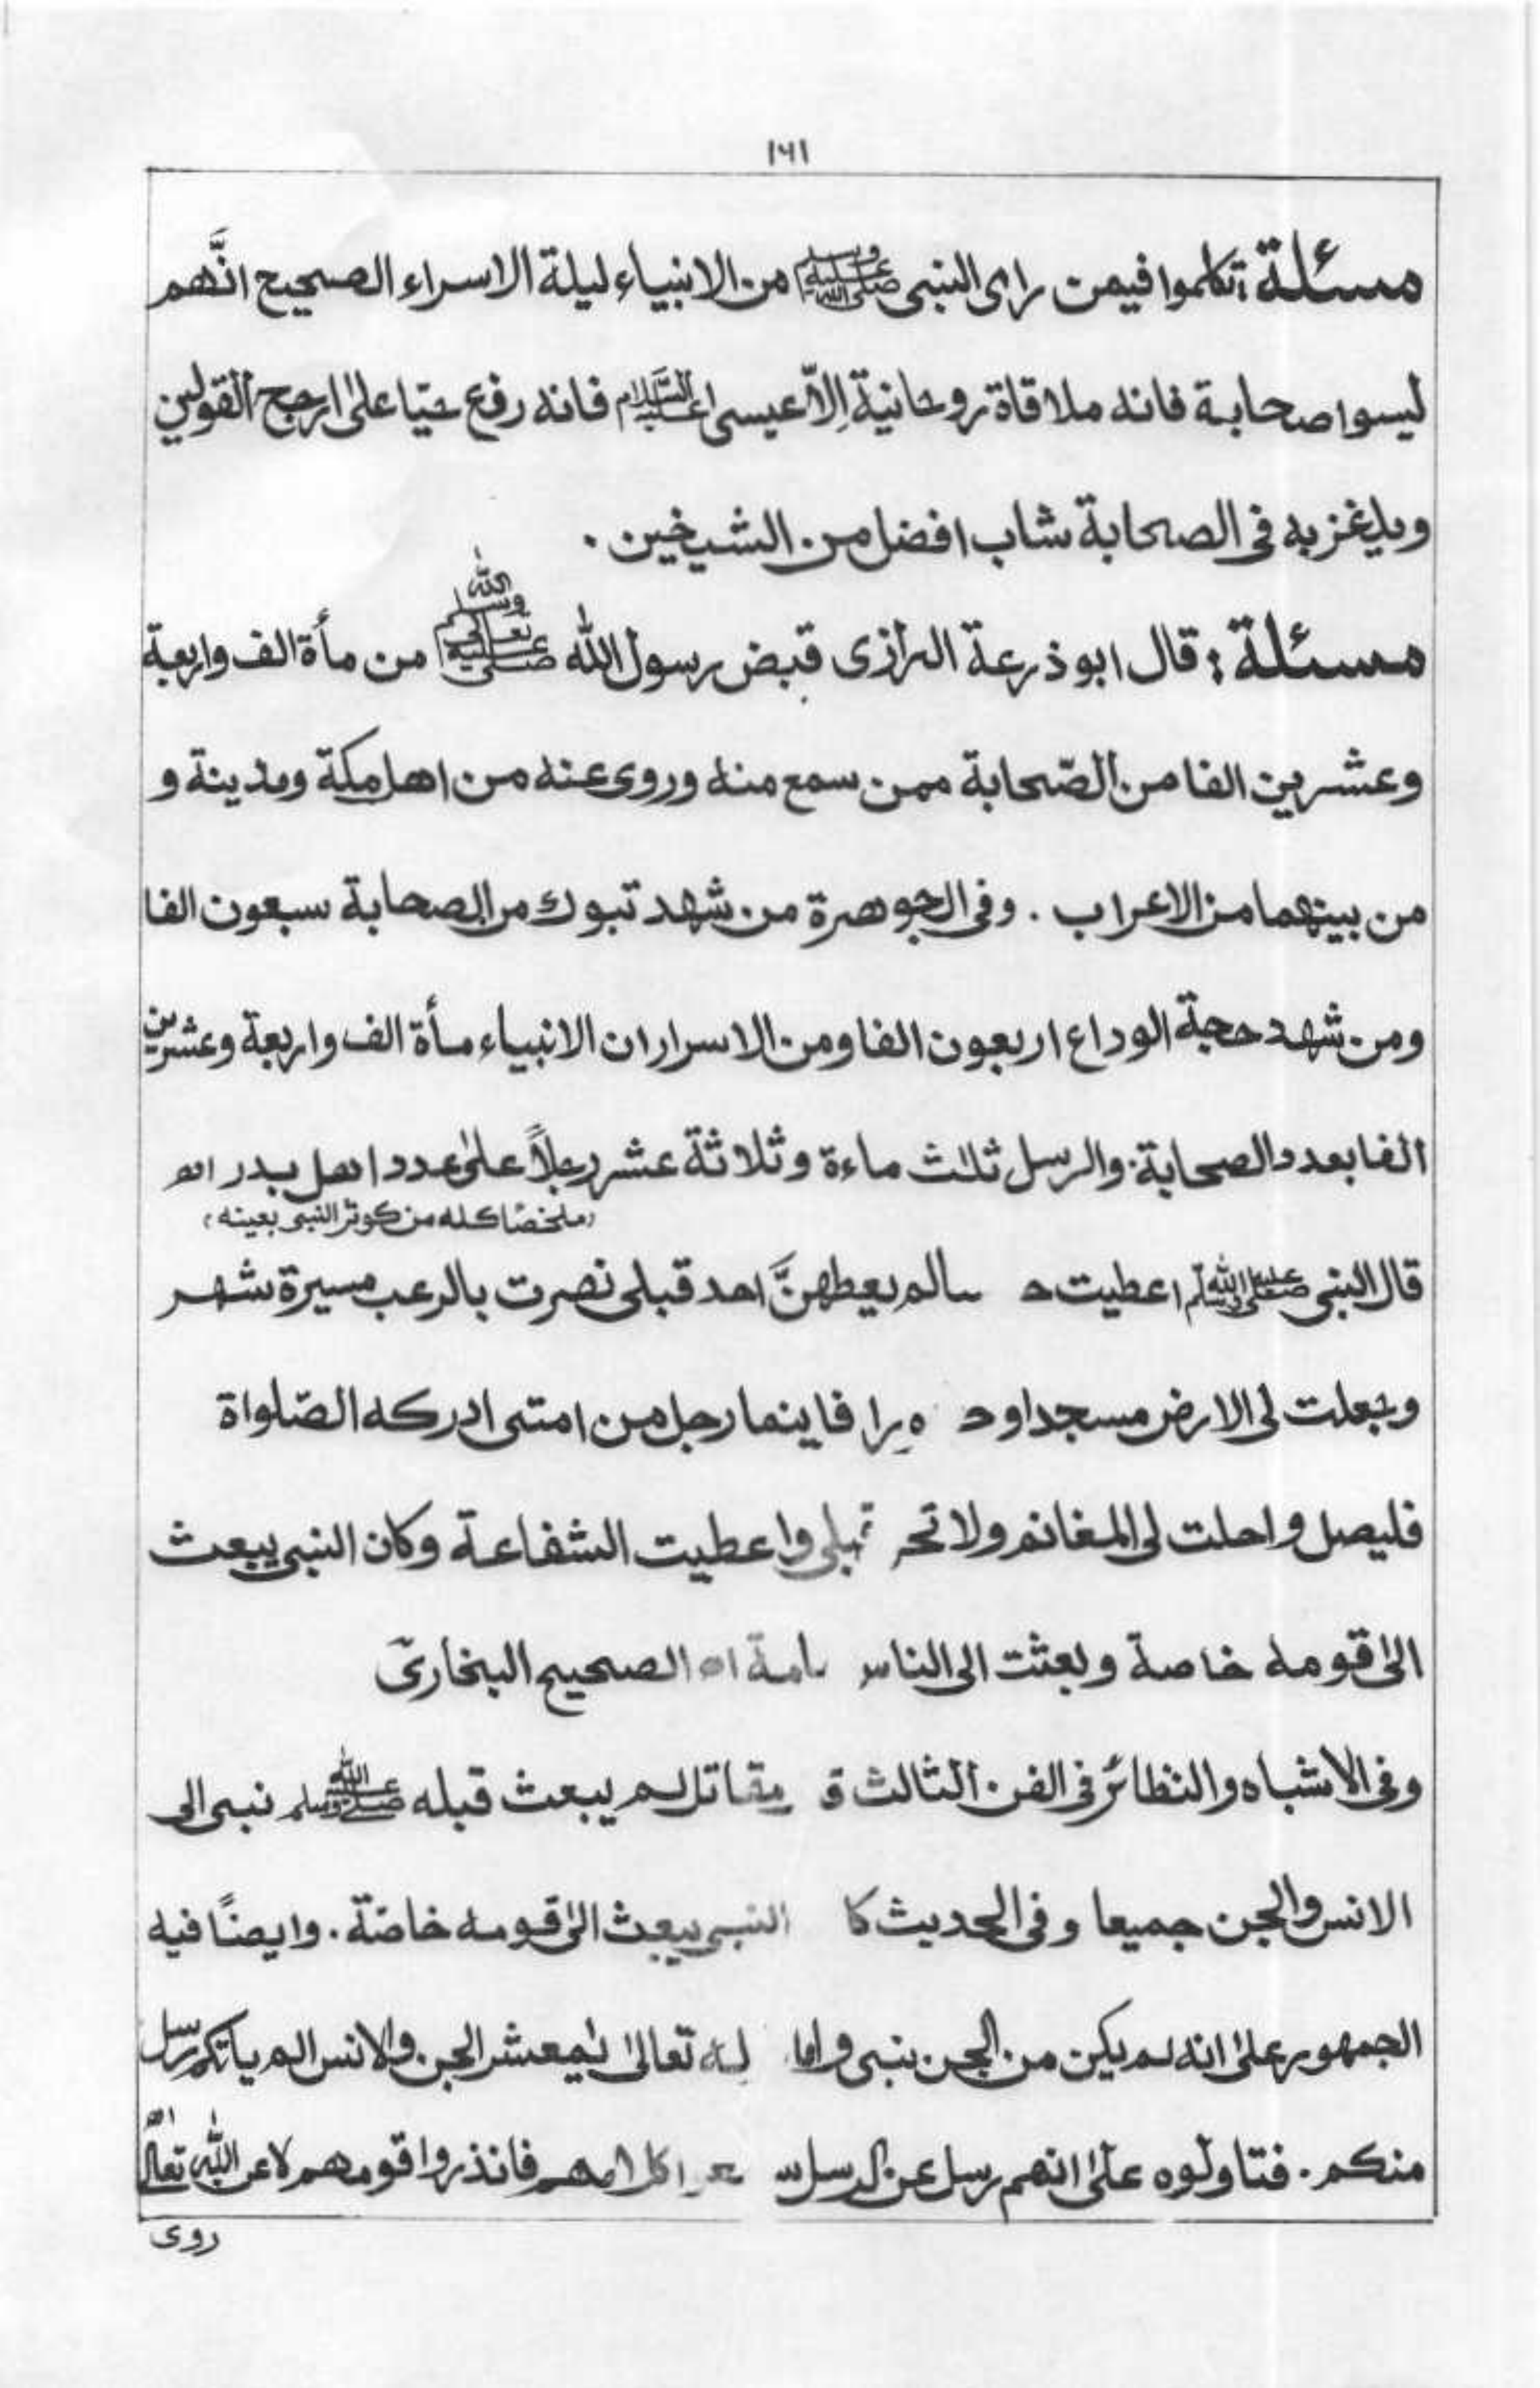 ١٦١
مسئلة: تكلموا فيمن راى النبى صلى الله عليه وسلم من الانبياء ليلة الاسراء الصحيح انَّهم
ليسوا صحابة فانه ملاقاة روحانية اِلّا عيسى عليه السَّلام فانه رفع حيّا علىٰ ارجح القولين
ويلغز به فى الصحابة شاب افضل من الشيخين ۔
مسئلة: قال ابوذرعة الرازى قبض رسول الله صلى الله تعالى عليه وسلم من مأة الف واربعة
وعشرين الفا من الصّحابة ممن سمع منه وروى عنه من اهل مكة ومدينة و
من بينهما من الاعراب ۔ وفى الجوهرة من شهد تبوك من الصحابة سبعون الفا
ومن شهد حجة الوداع اربعون الفا ومن الاسرار ان الانبياء مأة الف واربعة وعشرين
الفا بعدد الصحابة والرسل ثلٰث ماءة وثلاثة عشر رجلاً علىٰ عدد اهل بدر اھ
(ملخصًا كله من كوثر النبى بعينه)
قال النبى صلى الله عليه وسلم اعطيت سالم يعطهنَّ احد قبلى نصرت بالرعب مسيرة شهر
وجعلت لى الارض مسجدا و را فاينما رجل من امتى ادركه الصّلواة
فليصل واحلت لى المغانم ولا تحر قبلى واعطيت الشفاعة وكان النبى يبعث
الىٰ قومه خاصة وبعثت الى الناس امة اھ الصحيح البخارىّ
وفى الاشباه والنظائر فى الفن الثالث ق مقاتل لم يبعث قبله صلى الله عليه وسلم نبى الى
الانس والجن جميعا وفى الحديث كا النبى يبعث الىٰ قومه خاصّة ۔ وايضًا فيه
الجمهور علىٰ انه لم يكن من الجن بنبى واما له تعالىٰ يٰمعشر الجن والانس الم ياتكم رسل
منكم ۔ فتاولوه علىٰ انهم رسل عن الرسل فانذروا قومهم لا عن الله تعالىٰ اھ
روى